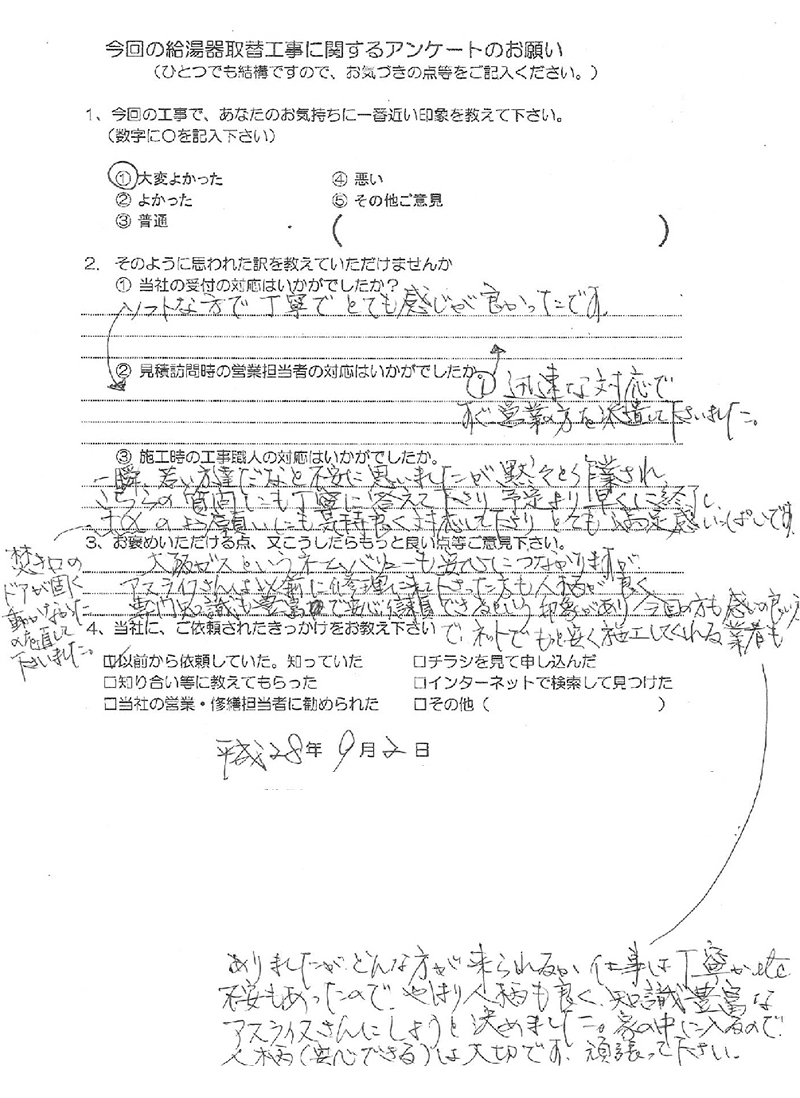 今回の給湯器取替工事に関するアンケートのお願い
(ひとつでも結構ですので、お気づきの点等をご記入ください。)
1、今回の工事で、あなたのお気持ちに一番近い印象を教えて下さい。
(数字に〇を記入下さい)
① 大変よかった
② よかった
③ 普通
④ 悪い
⑤ その他ご意見
( )
2. そのように思われた訳を教えていただけませんか
① 当社の受付の対応はいかがでしたか?
ソフトな方で丁寧でとても感じが良かったです。
② 見積訪問時の営業担当者の対応はいかがでしたか
① 迅速な対応で
すぐ営業の方を派遣して下さいました。
③ 施工時の工事職人の対応はいかがでしたか。
一瞬、若い方達だなと不安に思いましたが黙々と作業され
こちらの質問にも丁寧に答えて下さり予定より早くに終了し、
のお願いにも気持良く対応して下さりとても満足感いっぱいです。
焚き口の
ドアが固く
動かなかった
のを直して
下さいました。
3、お褒めいただける点、又こうしたらもっと良い点等ご意見下さい。
大阪ガスというネームバリューも安心につながりますが
アスライフさんは以前に修理に来て下さった方も人柄が良く
専門知識も豊富で安心信頼できるという印象があり今回の方も感じの良い
4、当社に、ご依頼されたきっかけをお教え下さい
で、ネットでもっと安く施工してくれる業者も
☑以前から依頼していた。知っていた
□チラシを見て申し込んだ
□知り合い等に教えてもらった
□インターネットで検索して見つけた
□当社の営業・修繕担当者に勧められた
□その他( )
平成28年 9月2日
ありましたが、どんな方が来られるか、仕事は丁寧かetc
不安もあったので、やはり人柄も良く、知識豊富な
アスライフさんにしようと決めました。家の中に入るので
人柄(安心できる)は大切です。頑張って下さい。